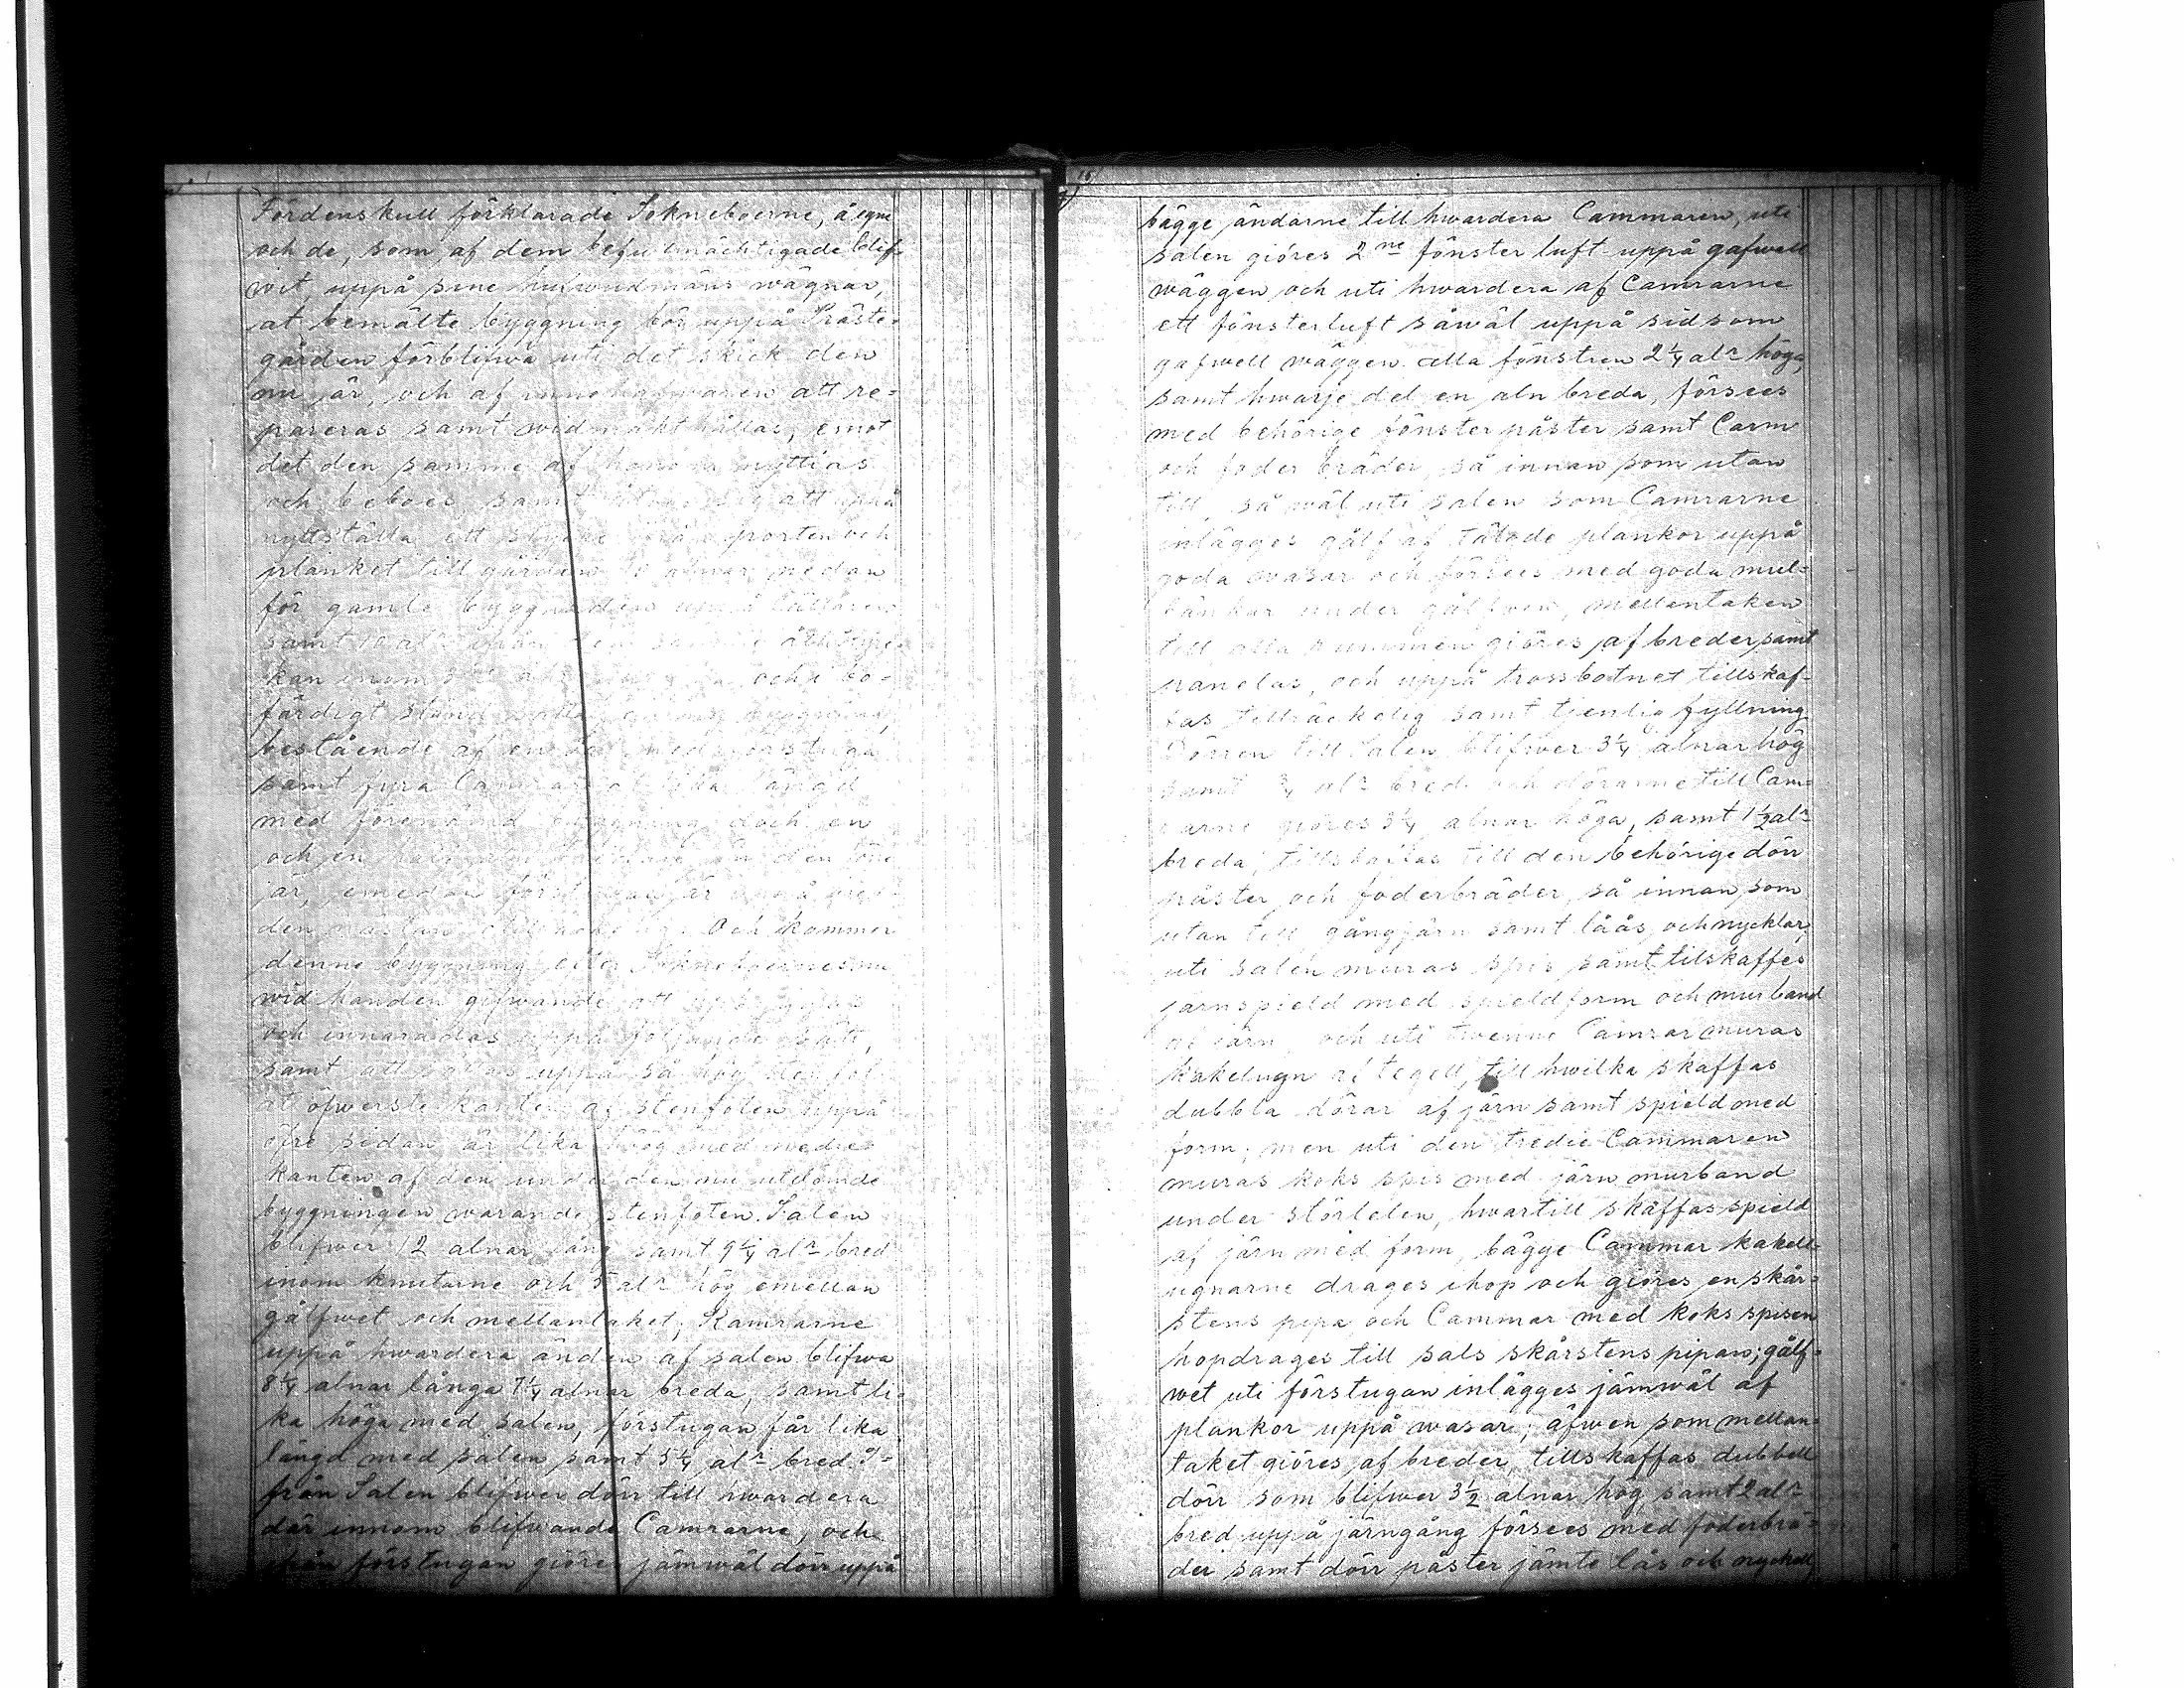 Fördenskull förklarade Sokneboerne, å egne
och de, som af dem befullmächtigade blif-
wit, uppå sine hufwudmäns wägnar,
at bemälte byggning bör uppå Präste-
gården förblifwa uti det skick den
nu är, och af innehafwaren att re-
pareras samt wid makt hållas, emot
det den samme af honom nyttias
och beboes, samt att
ett porten och
planket till gården 10 alnar nedan
för gamle byggnaden uppå Källaren
samt
kan inom och bo-
färdigt
bestående af en sal med förstuga
samt fyra Camrar af lika längd
med förenämd byggning, doch en
och en half aln än den förre
är, emedan förstugan är
den Och kommer
denne byggning efter Sokneboernes nu
wid handen gifwande att upbyggas
och innaredas uppå följande sätt,
samt att sättas uppå så hög stenfot
at öfwerste kanten af stenfoten uppå
öfre sidan är lika hög med nedre
kanten af den under den nu utdömde
byggningen warande stenfoten. Salen
blifwer 12 alnar lång samt 9 1/4 alr bred
inom knutarne och 5 alr hög emellan
gålfwet och mellantaket, Kamrarne
uppå hwardera ändan af salen blifwa
8 1/4 alnar långa 7 1/4 alnar breda, samt li-
ka höga med salen, förstugan får lika
längd med salen samt 5 1/4 alr bred. I-
från Salen blifwer dörr till hwardera
där innom blifwande Camrarne, och
ifrån förstugan giöres jämwäl dörr uppå
bägge ändarne till hwardera Cammaren, uti
salen giöres 2ne fönster luft uppå gafwell
wäggen och uti hwardera af Camrarne
ett fönsterluft såwäl uppå sid som
gafwell wäggen. alla fönstren 2 1/4 alr höga,
samt hwarje del en aln breda, försees
med behörige fönster påster samt Carm
och foder bräder, så innan som utan
till, så wäl uti salen som Camrarne
inlägges gålf af tälgde plankor uppå
goda wasar och försees med goda mul-
bänkar under gålfwen, mellantaken
till alla rummen giöres af breder samt
panelas, och uppå trossbotnet tillskaf-
fas tillräckelig samt tjenlig fyllning
Dörren till Salen blifwer 3 1/4 alnar hög
samt alr bred och dörarne till Cam-
rarne giöres 3 1/4 alnar höga, samt 1 1/2 alr
breda, tillskaffas till den behörige dörr
påster och foderbräder, så innan som
utan till gångjärn samt låås och nycklar,
uti salen muras spis samt tilskaffes
järnspield med spieldform och murband
af järn, och uti twenne Camrar muras
kakelugn af tegell, till hwilka skaffas
dubbla dörar af järn samt spield med
form; men uti den tredie Cammaren
muras koks spis med järn murband
under störlelen, hwartill skaffas spield
af järn med form, bägge Cammar kakell-
ugnarne drages ihop och giöres en skår-
stens pipa och Cammar med koks spisen
hopdrages till sals skårstens pipan; gålf-
wet uti förstugan inlägges jämwäl af
plankor uppå wasar; äfwen som mellan-
taket giöres af breder, tillskaffas dubbell
dörr som blifwer 3 1/2 alnar hög samt 2 alr
bred uppå järngång försees med foderbrä-
der samt dörr påster jämte lås och nyckell